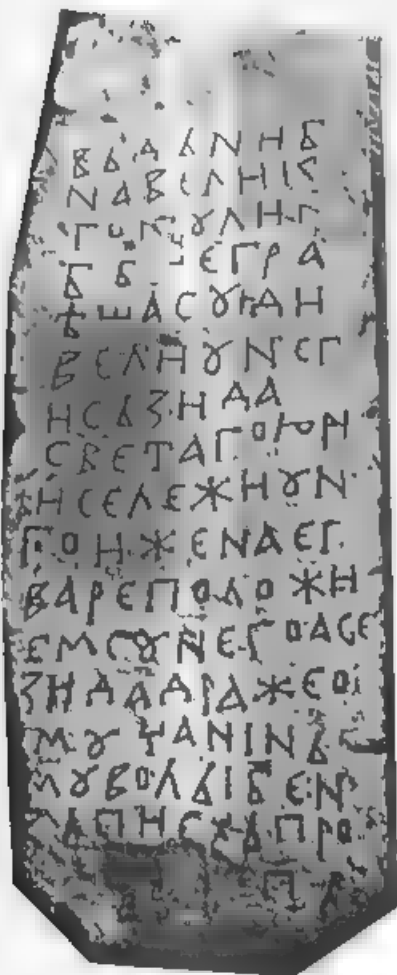 ВЬДЬNНБ
NАВЕЛНКЕ
ГОКУЛНГ
ББЬЕГРА
ЬШАСУꙉАН
ВЕЛНУNЕГ
НСЬЗНДА
СВЕТАГОЮРН
ѢНСЕЛЕЖНУN
ГОНЖЕNАЕГ
ВАРЕПОЛОЖН
ЕМЕУNЕГОАСЕ
ЗНДАДРАЖЕО
МУЧАNІNЬ
МУВОЛЬІБЕN
ЬПНСХЬПРО